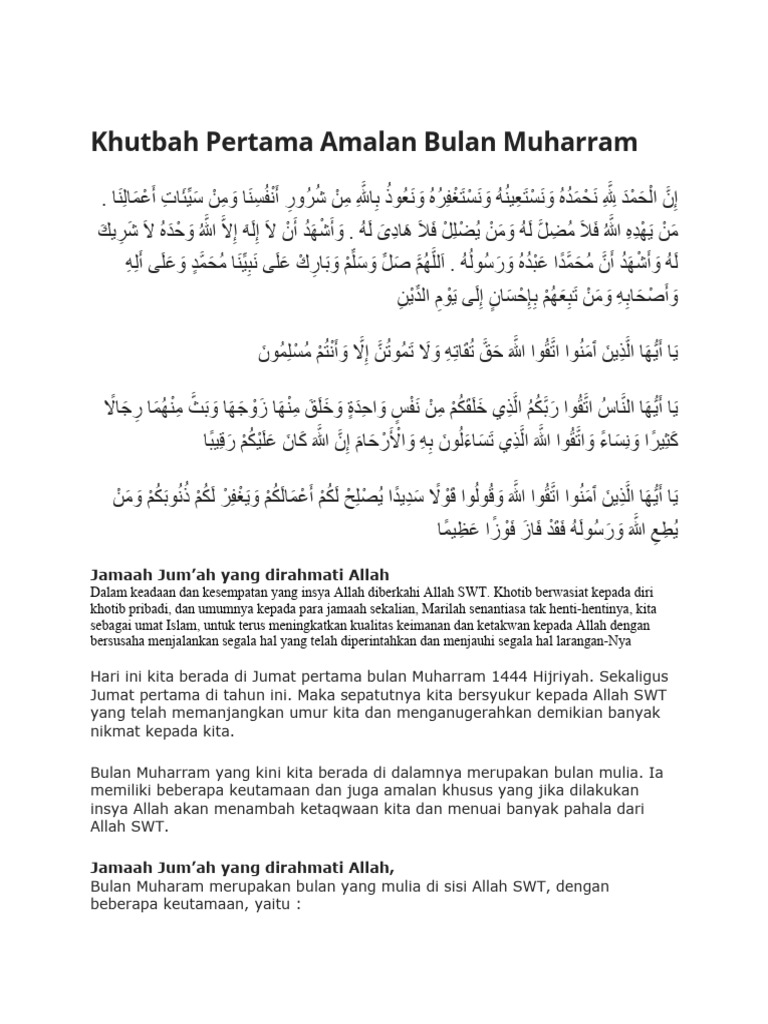 Khutbah Pertama Amalan Bulan Muharram
إِنَّ الْحَمْدَ لِلَّهِ نَحْمَدُهُ وَنَسْتَعِينُهُ وَنَسْتَغْفِرُهُ وَنَعُوذُ بِاللَّهِ مِنْ شُرُورِ أَنْفُسِنَا وَمِنْ سَيِّئَاتِ أَعْمَالِنَا .
مَنْ يَهْدِهِ اللَّهُ فَلاَ مُضِلَّ لَهُ وَمَنْ يُضْلِلْ فَلاَ هَادِىَ لَهُ . وَأَشْهَدُ أَنْ لاَ إِلَهَ إِلاَّ اللَّهُ وَحْدَهُ لاَ شَرِيكَ
لَهُ وَأَشْهَدُ أَنَّ مُحَمَّدًا عَبْدُهُ وَرَسُولُهُ . اَللَّهُمَّ صَلِّ وَسَلِّمْ وَبَارِكْ عَلَى نَبِيِّنَا مُحَمَّدٍ وَعَلَى أَلِهِ
وَأَصْحَابِهِ وَمَنْ تَبِعَهُمْ بِإِحْسَانٍ إِلَى يَوْمِ الدِّيْنِ
يَا أَيُّهَا الَّذِينَ آَمَنُوا اتَّقُوا اللَّهَ حَقَّ تُقَاتِهِ وَلَا تَمُوتُنَّ إِلَّا وَأَنْتُمْ مُسْلِمُونَ
يَا أَيُّهَا النَّاسُ اتَّقُوا رَبَّكُمُ الَّذِي خَلَقَكُمْ مِنْ نَفْسٍ وَاحِدَةٍ وَخَلَقَ مِنْهَا زَوْجَهَا وَبَثَّ مِنْهُمَا رِجَالًا
كَثِيرًا وَنِسَاءً وَاتَّقُوا اللَّهَ الَّذِي تَسَاءَلُونَ بِهِ وَالْأَرْحَامَ إِنَّ اللَّهَ كَانَ عَلَيْكُمْ رَقِيبًا
يَا أَيُّهَا الَّذِينَ آَمَنُوا اتَّقُوا اللَّهَ وَقُولُوا قَوْلًا سَدِيدًا يُصْلِحْ لَكُمْ أَعْمَالَكُمْ وَيَغْفِرْ لَكُمْ ذُنُوبَكُمْ وَمَنْ
يُطِعِ اللَّهَ وَرَسُولَهُ فَقَدْ فَازَ فَوْزًا عَظِيمًا
Jamaah Jum’ah yang dirahmati Allah
Dalam keadaan dan kesempatan yang insya Allah diberkahi Allah SWT. Khotib berwasiat kepada diri
khotib pribadi, dan umumnya kepada para jamaah sekalian, Marilah senantiasa tak henti-hentinya, kita
sebagai umat Islam, untuk terus meningkatkan kualitas keimanan dan ketakwan kepada Allah dengan
bersusaha menjalankan segala hal yang telah diperintahkan dan menjauhi segala hal larangan-Nya
Hari ini kita berada di Jumat pertama bulan Muharram 1444 Hijriyah. Sekaligus
Jumat pertama di tahun ini. Maka sepatutnya kita bersyukur kepada Allah SWT
yang telah memanjangkan umur kita dan menganugerahkan demikian banyak
nikmat kepada kita.
Bulan Muharram yang kini kita berada di dalamnya merupakan bulan mulia. Ia
memiliki beberapa keutamaan dan juga amalan khusus yang jika dilakukan
insya Allah akan menambah ketaqwaan kita dan menuai banyak pahala dari
Allah SWT.
Jamaah Jum’ah yang dirahmati Allah,
Bulan Muharam merupakan bulan yang mulia di sisi Allah SWT, dengan
beberapa keutamaan, yaitu :